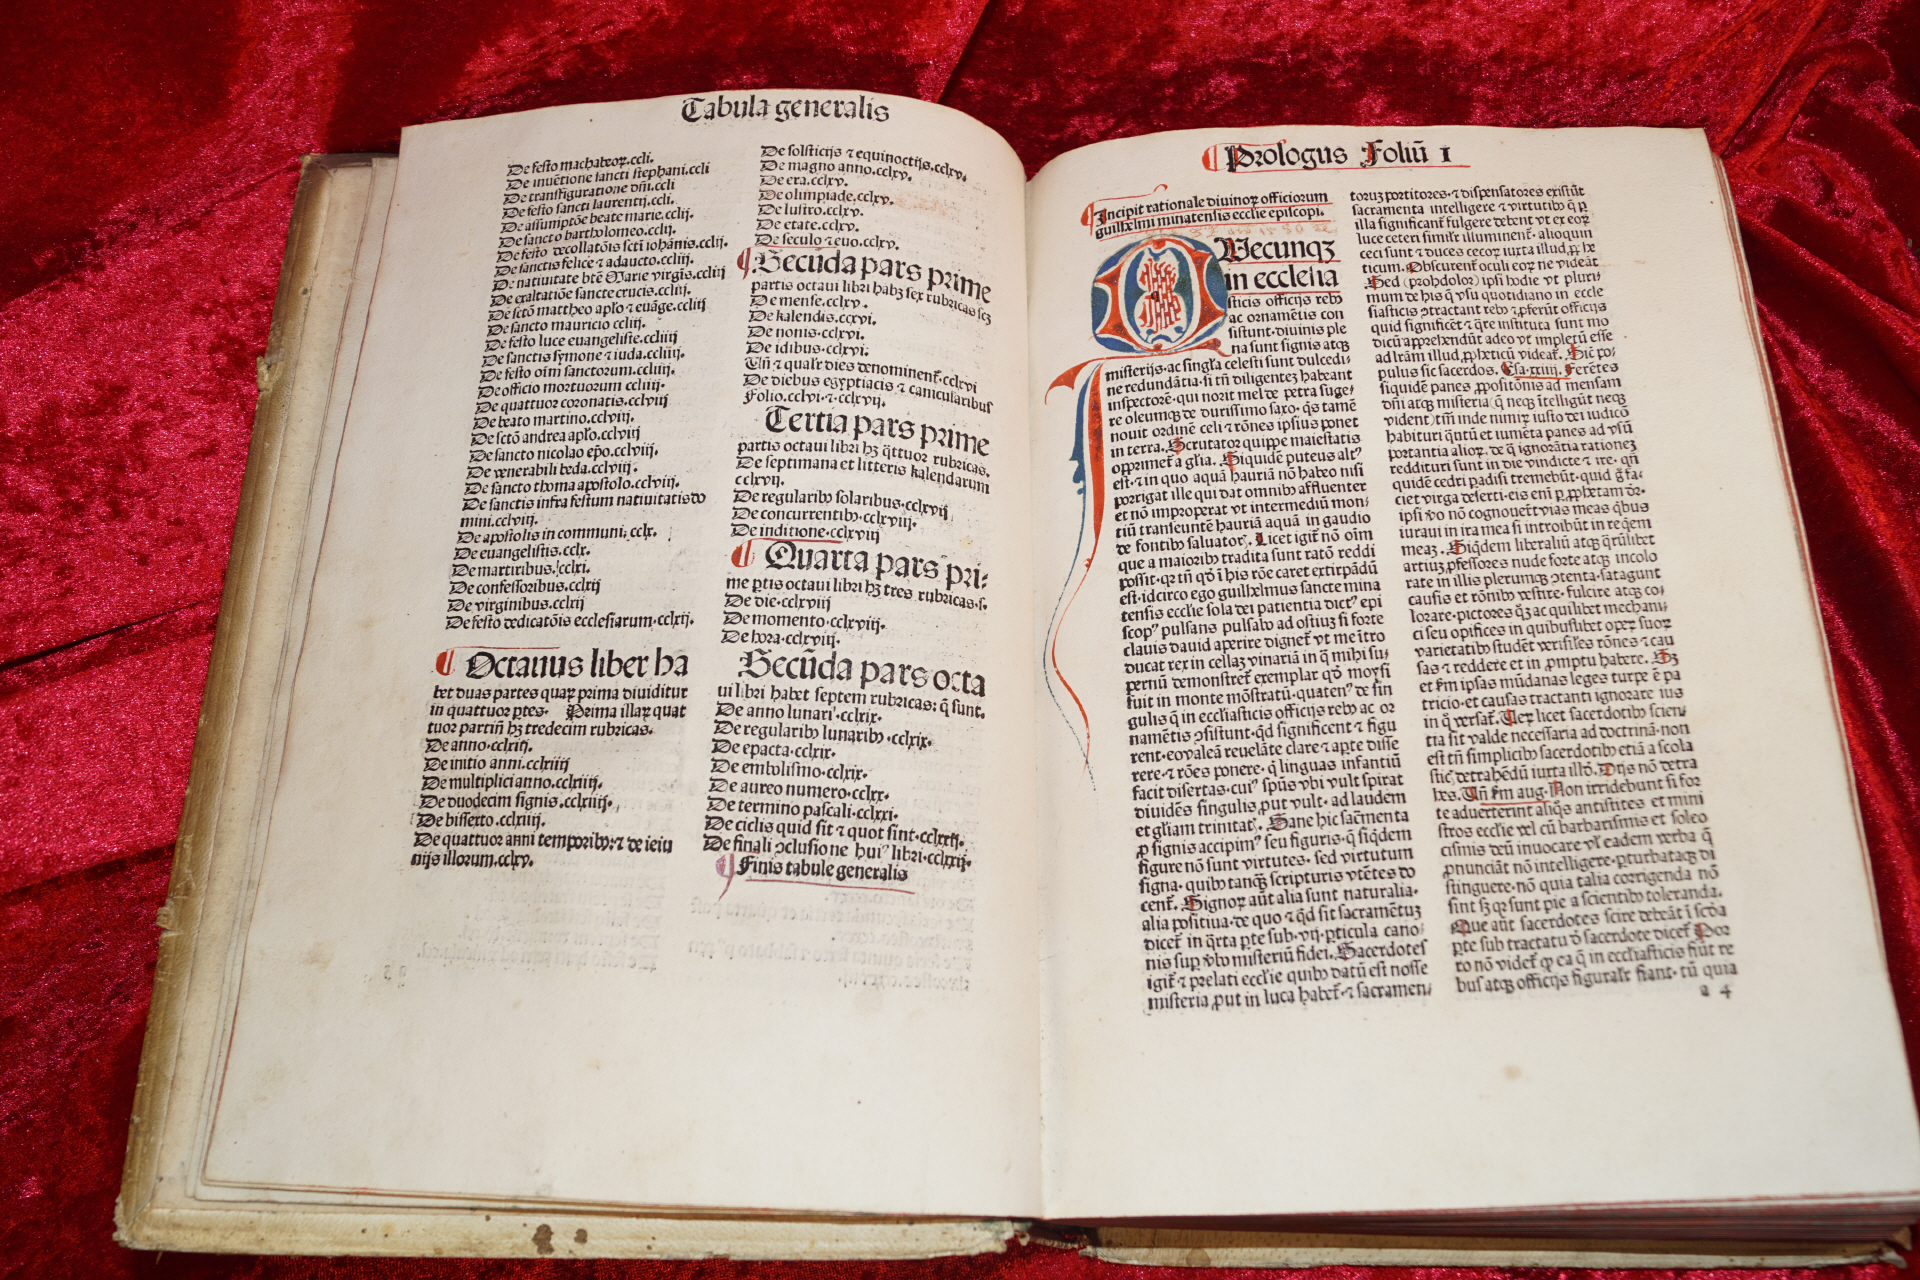 Tabula generalis
De festo machabeoꝝ.ccli.
De inuētione sancti stephani.ccli
De transfiguratione dn̄i.ccli
De festo sancti laurentij.ccli.
De assumptōe beate marie.cclij.
De sancto bartholomeo.cclij.
De festo decollatōis scti iohānis.cclij.
De sanctis felice ⁊ adaucto.ccliij.
De natiuitate btē Marie virgis.ccliij
De exaltatiōe sancte crucis.ccliij.
De sctō mattheo aplo ⁊ euāge.ccliij
De sancto mauricio ccliij.
De festo luce euangeliste.ccliiij
De sanctis symone ⁊ iuda.ccliiij.
De festo oīm sanctorum.ccliiij.
De officio mortuorum ccliiij.
De quattuor coronatis.cclviij
De beato martino.cclviij.
De sctō andrea aplo.cclviij
De sancto nicolao ep̄o.cclviij.
De venerabili beda.cclviij.
De sancto thoma apostolo.cclviij.
De sanctis infra festum natiuitatis do
mini.cclviij.
De apostolis in communi. cclx.
De euangelistis.cclx.
De martiribus.cclxi.
De confessoribus.cclxij
De virginibus.cclxij
De festo dedicatōis ecclesiarum.cclxij.
Octauus liber ha
bet duas partes quaꝝ prima diuiditur
in quattuor ꝑtes. Prima illaꝝ quat
tuor partiū hꝫ tredecim rubricas.
De anno.cclxiij.
De initio anni.cclxiiij
De multiplici anno.cclxiiij.
De duodecim signis.cclxiiij.
De bisserto.cclxiiij.
De quattuor anni temporibꝰ:⁊ de ieiu
nijs illorum.cclxv.
De solsticijs ⁊ equinoctijs.cclxv.
De magno anno.cclxv.
De era.cclxv.
De olimpiade.cclxv.
De lustro.cclxv.
De etate.cclxv.
De seculo ⁊ euo.cclxv.
Secūda pars prime
partis octaui libri habꝫ sex rubricas sꝫ
De mense.cclxv.
De kalendis.ccxvi.
De nonis.cclxvi.
De idibus.cclxvi.
Vn̄ ⁊ qualr dies denominent̄.cclxvi
De diebus egyptiacis ⁊ canicularibus
Folio.cclvi.⁊.cclxvij.
Tertia pars prime
partis octaui libri hꝫ q̄ttuor rubricas.
De septimana et litteris kalendarum
cclxvij.
De regularibꝰ solaribus.cclxvij
De concurrentibꝰ.cclxviij.
De inditione.cclxviij
Quarta pars pri-
me ꝑtis octaui libri hꝫ tres rubricas.s.
De die.cclxviij
De momento.cclxviij.
De hora.cclxviij.
Secūda pars octa
ui libri habet septem rubricas: q̄ sunt.
De anno lunari.cclxix.
De regularibꝰ lunaribꝰ.cclxix.
De epacta.cclxix.
De embolismo.cclxix.
De aureo numero.cclxx.
De termino pascali.cclxxi.
De ciclis quid sit ⁊ quot sint.cclxxij.
De finali ɔclusione huiꝰ libri.cclxxij.
Finis tabule generalis
Prologus Foliū I
Incipit rationale diuinoꝝ officiorum
guilhelmi minatensis ecclie episcopi.
QVecunqꝫ
in ecclesia
sticis officijs rebꝰ
ac ornamētis con
sistunt.diuinis ple
na sunt signis atqꝫ
misterijs.ac singl̄a celesti sunt dulcedi-
ne redundātia.si tn̄ diligentez habeant
inspectorē.qui norit mel de petra suge-
re oleumqꝫ de durissimo saxo. q̄s tamē
nouit ordinē celi ⁊ rōnes ipsius ponet
in terra. Scrutator quippe maiestatis
opprimet̄ a gl̄ia. Siquidē puteus altꝰ
est.⁊ in quo aquā hauriā nō habeo nisi
porrigat ille qui dat omnibꝰ affluenter
et nō improperat vt intermediū mon-
tiū transeuntē hauriā aquā in gaudio
de fontibꝰ saluatoꝝ. Licet igit̄ nō oīm
que a maioribꝰ tradita sunt ratō reddi
possit.qꝛ tn̄ qd̄ i his rōe caret extirpādū
est.idcirco ego guilhelmus sancte mina
tensis ecclie sola dei patientia dictꝰ epi
scopꝰ pulsans pulsabo ad ostiuꝫ si forte
clauis dauid aperire dignet̄ vt me ītro
ducat rex in cellaꝫ vinariā in q̄ mihi su-
pernū demonstret̄ exemplar qd̄ moysi
fuit in monte mōstratū.quatenꝰ de sin
gulis q̄ in eccliasticis officijs rebꝰ ac or
namētis ɔsistunt.qd significent ⁊ figu
rent.eo valeā reuelāte clare ⁊ aꝑte disse
rere.⁊ rōes ponere. q̄ linguas infantiū
facit disertas.cuiꝰ spūs vbi vult spirat
diuidēs singulis ꝓut vult. ad laudem
et gl̄iam trinitatꝭ. Sane hic sacm̄enta
ꝓ signis accipimꝰ seu figuris.q̄ siqdem
figure nō sunt virtutes. sed virtutum
signa.quibꝰ tanqꝫ scripturis vtētes do
cent̄. Signoꝝ aūt alia sunt naturalia.
alia positiua.de quo ⁊ qd sit sacramētuꝫ
dicet̄ in q̄rta ꝑte sub.vij.ꝑticula cano-
nis sup vbo misteriū fidei. Sacerdotes
igit̄ ⁊ prelati ecclie quibꝰ datū est nosse
misteria ꝓut in luca habet̄.⁊ sacramen-
toruꝫ portitores.⁊ dispensatores existūt
sacramenta intelligere ⁊ virtutibꝰ q̄ ꝑ
illa significant̄ fulgere debent vt ex eoꝝ
luce ceteri simil̄r illuminent̄. alioquin
ceci sunt ⁊ duces cecoꝝ iuxta illud ꝓphe
ticum. Obscurent̄ oculi eoꝝ ne videāt
Sed (prohdolor) ipsi hodie vt pluri-
mum de his q̄ vsu quotidiano in eccle
siasticis ɔtractant rebꝰ ⁊ ꝓferūt officijs
quid significēt ⁊ q̄re instituta sunt mo
dicū apprehendūt adeo vt impletū esse
ad lrām illud ꝓpheticū videat̄. Sic po-
pulus sic sacerdos. Esa.xxiiij. Ferētes
siquidē panes ꝓpositiōnis ad mensam
dn̄i atqꝫ misteria q̄ neqꝫ ītelligūt neqꝫ
vident)tn̄ inde nimiꝝ iusto dei iudicō
habituri q̄ntū et iumēta panes ad vsū
portantia alioꝝ. de q̄ ignorātia rationeꝫ
reddituri sunt in die vindicte ⁊ ire. qn̄
quidē cedri padisi tremebūt.quid g̊ fa-
ciet virga deserti.eis eni ꝑ ꝓphetam dr̄.
ipsi v̊o nō cognouerūt vias meas q̄bus
iuraui in ira mea si introibūt in reqem
meaꝫ. Siqdem liberaliū atqꝫ q̄rūlibet
artiuꝫ ꝓfessores nude forte atqꝫ incolo
rate in illis plerumqꝫ ɔtenta.satagunt
causis et rōnibꝰ vestire. fulcire atqꝫ co-
lorare.pictores qꝫ ac quilibet mechani-
ci seu opifices in quibuslibet oꝑeꝝ suoꝝ
varietatibꝰ studēt verisiles rōnes ⁊ cau
sas ⁊ reddere et in ꝓmptu habere. Sꝫ
et ipsas mūdanas leges turpe ē pa
tricio.et causas tractanti ignorare ius
in q̄ versat̄. Veꝝ licet sacerdotibꝰ scien-
tia sit valde necessaria ad doctrinā.non
est tn̄ simplicibꝰ sacerdotibꝰ etiā a scola
stic detrahēdū iuxta illd̄. Dijs nō detra
hes. Vn̄ aug. Non irridebunt si for
te aduerterint aliq̄s antistites et mini
stros ecclie vel cū barbarismis et soleo
cismis deū inuocare vl̄ eadem verba q̄
ꝓnunciāt nō intelligere.ꝑturbataqꝫ di
stinguere.nō quia talia corrigenda nō
sint sꝫ qꝛ sunt pie a scientibꝰ toleranda.
Que aūt sacerdotes scire debeāt i scd̄a
ꝑte sub tractatu d̄ sacerdote dicet̄ Por
ro nō videt̄ qꝫ ea q̄ in eccliasticis fiūt re
bus atqꝫ officijs figuralr̄ fiant. tū quia
a 4